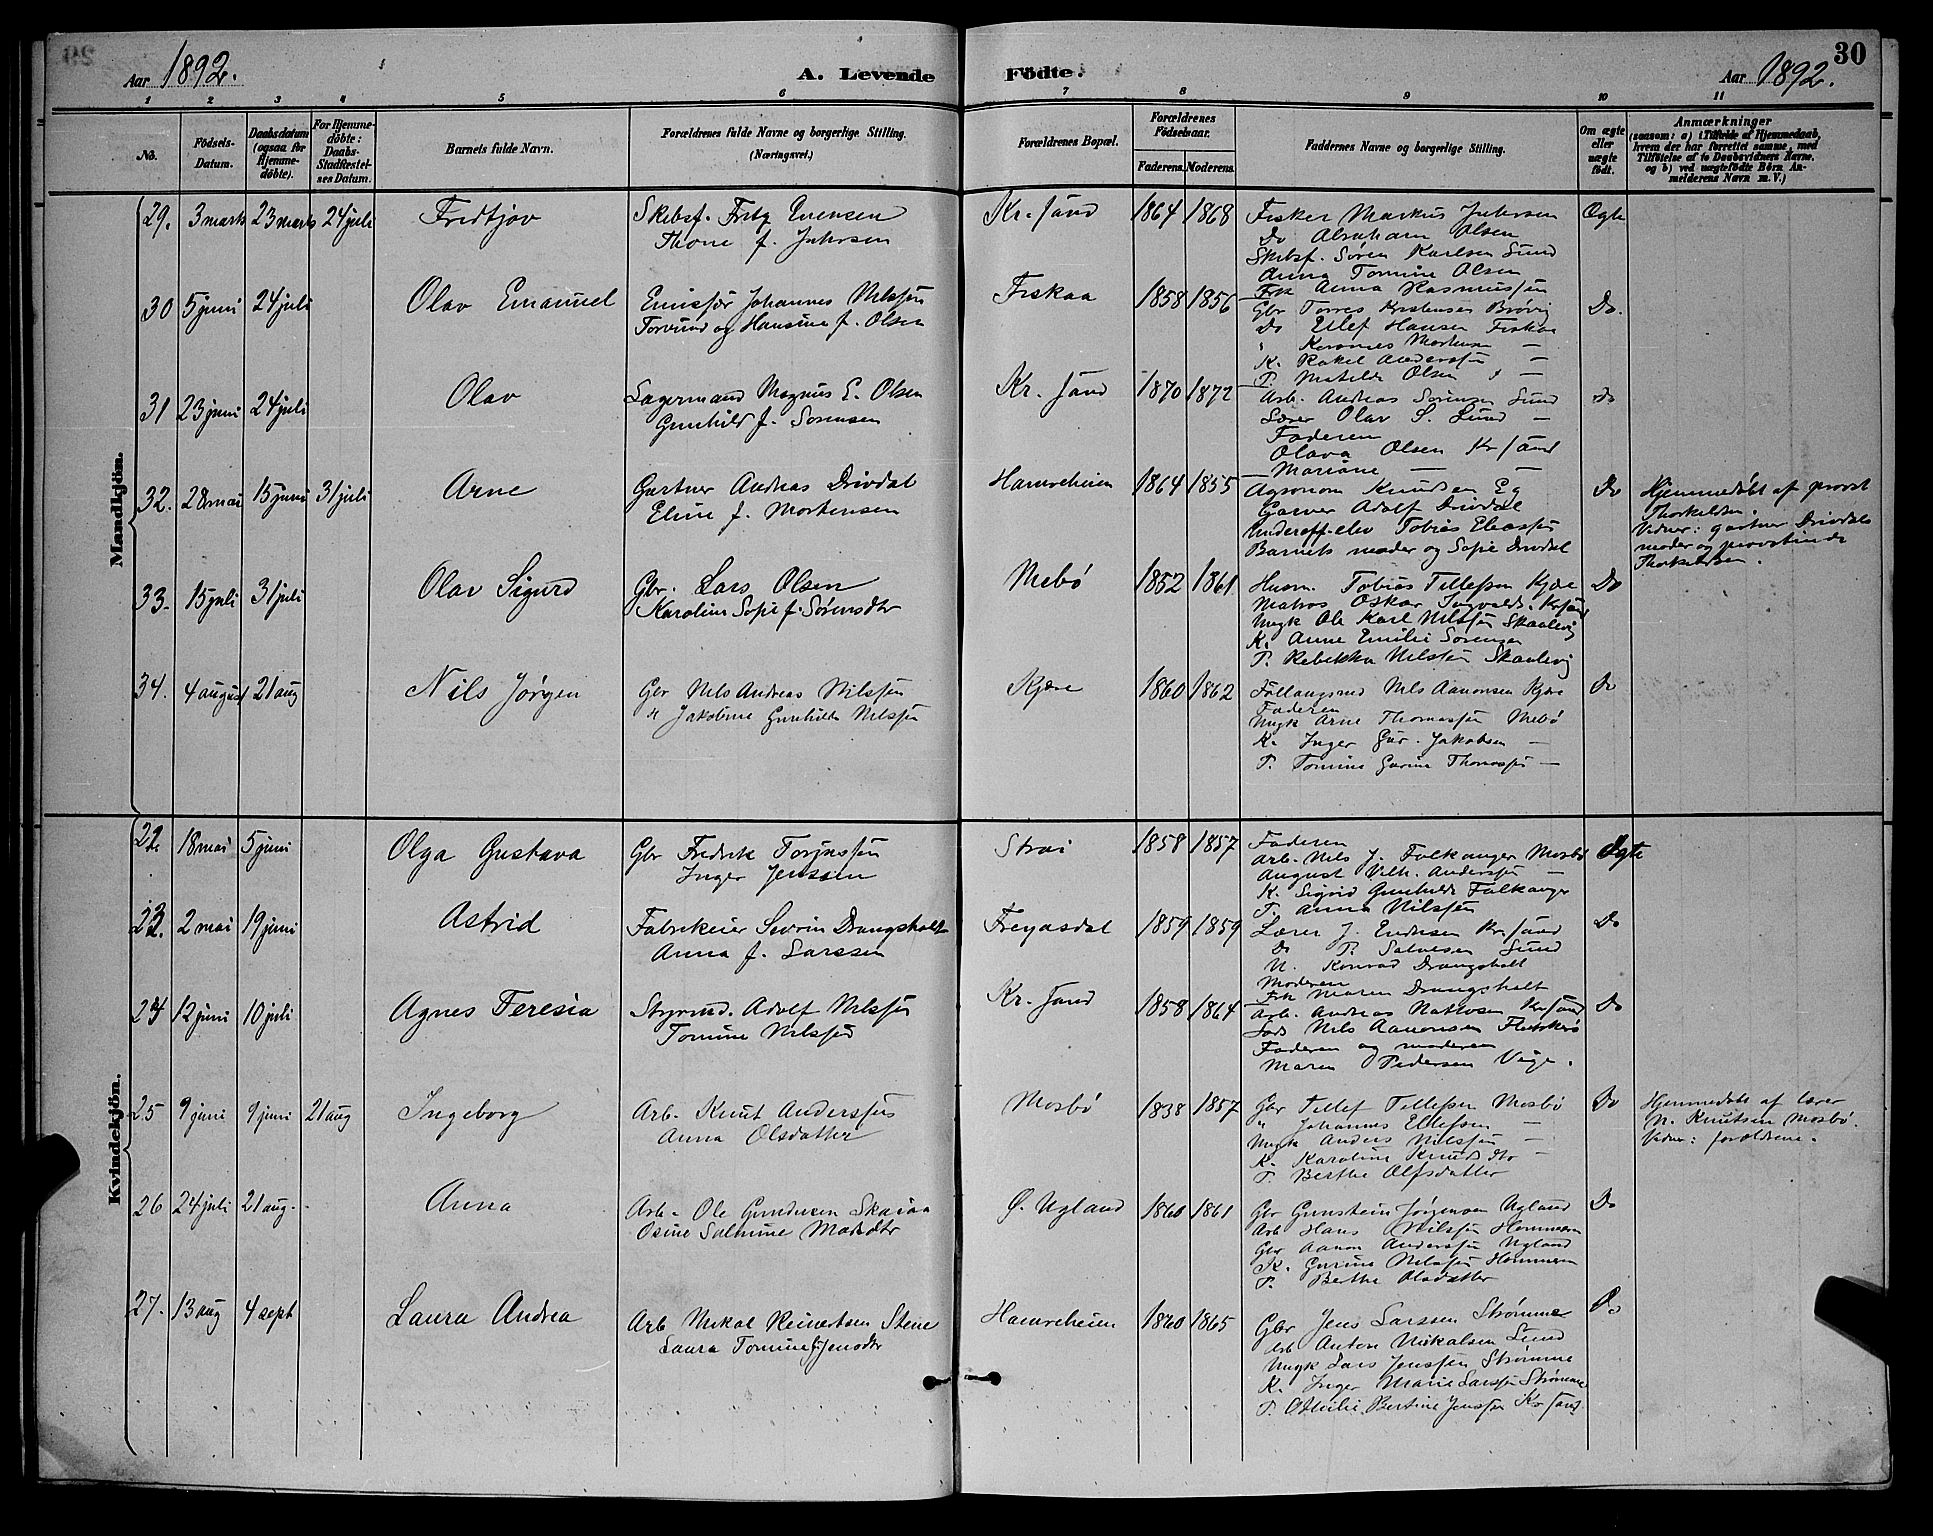 Aar 1892.
A. Levende Födte.
Aar 1892.
30
1 2 3 4 5 6 7 8 9 10 11
No.
Födsels-Datum.
Daabsdatum (ogsaa for Hjemmedöbte).
For Hjemmedöbte: Daabs-Stadfæstelses Datum.
Barnets fulde Navn.
Forældrenes fulde Navne og borgerlige Stilling. (Næringsvei.)
Forældrenes Bopæl.
Forældrenes Födselsaar.
Faderens. Moderens.
Faddernes Navne og borgerlige Stilling.
Om ægte eller uægte födt.
Anmærkninger
(saasom: a) i Tilfælde af Hjemmedaab, hvem der har forrettet samme, med Tilföielse af to Daabsvidners Navne. og b) ved uægtefödte Börn Anmelderens Navn m. V.)
Mandkjön.
29. 3 marts 23 marts 24 juli Fredtjov
Skibsf. Fritz Evensen
Thone f. Juhrsen
Kr. sand 1864 1868
Fisker Markus Juhrsen
Do Abraham Olsen
Skibsf. Søren Karlsen Lund
Anna Tomine Olsen
Frk Anna Rasmussen
Ægte
30 5 juni 24 juli Olav Emanuel
Emissær Johannes Nilssen
Torvund og Hansine f. Olsen
Fiskaa 1858 1856
Gbr Torres Kristensen Brøvig
Do Ellef Hansen Fiskaa
" Mortensen —
K. Rakel Anderssen —
P. Matilde Olsen —
Do.
31 23 juni 24 juli Olav
Lagermand Magnus E. Olsen
Gunhild f. Sørensen
Kr. sand 1870 1872
Arb. Andreas Sørensen Lund
Lærer Olav S. Lund —
Faderen
Olava Olsen Kr sand
Mariane — —
Do
32. 28 mai 15 juni 31 juli Arne
Gartner Andreas Drivdal
Eline f. Mortensen
Hamreheien 1864 1855
Agronom Knudsen Eg
Garver Adolf Drivdal
Underoff. elev Tobias Eliassen
Barnets moder og Sofie Drivdal
Do
Hjemmedøbt af provst
Thorkildsen.
Vidner: gartner Drivdals
moder og provstinde
Thorkildsen.
33. 15 juli 31 juli Olav Sigurd
Gbr. Lars Olsen
Karoline Sofie f. Sørensdtr
Mebø 1852 1861
Husm. Tobias Tellefsen Kjære
Matros Oskar Ingvalds. Kr sand
Ungk Ole Karl Nilssen Skaalevig
K. Anne Emilie Sørensen
P. Rebekka Nilssen Skaalevig
Do
34. 4 august 21 aug Nils Jørgen
Gbr Nils Andreas Nilssen
Jakobine Gunhilde Nilssen
Kjære 1860 1862
Nils Aanonsen Kjære
Faderen
Ungk Arne Thomassen Mebø
K. Inger Gur. Jakobsen —
P. Tomine Gurine Thomassen —
Do
Kvindekjön.
22 18 mai 5 juni Olga Gustava
Gbr Fredrik Torjussen
Inger Jenssen
Strai 1858 1857
Faderen
Arb. Nils J. Falkanger Mosbø
August Vilh. Anderssen —
K. Sigrid Gunhilde Falkanger
P. Anna Nilssen
Ægte
23. 2 mai 19 juni Astrid
Fabrikeier Severin Drangsholt
Anna f. Larssen
Freyasdal 1859 1859
Lærer J. Endresen Kr. sand
Do P. Salvesen Lund
U. Konrad Drangsholt
Moderen
Frk Maren Drangsholt
Do
24 12 juni 10 juli Agnes Teresia
Styrmd. Adolf Nilssen
Tomine Nilssen
Kr. sand 1858 1864
Arb. Andreas Kr sand
Lods Nils Aanonsen Flekkerø
Faderen og moderen
Maren Pedersen Vige.
Do
25 9 juni 9 juni 21 aug Ingeborg
Arb. Knut Anderssen
Anna Olsdatter
Mosbø 1838 1857
Gbr Tellef Tellefsen Mosbø
" Johannes Ellefsen —
Ungk Anders Nilssen —
K. Karoline Knudsdtr —
P. Berthe Olfsdatter
Do
Hjemmedøbt af lærer
N. Knutsen Mosbø.
Vidner: forældrene.
26 24 juli 21 aug. Anna
Arb. Ole Gundersen Skaiaa
Osine Salmine Madsdtr
Ø. Ugland 1860 1861
Gbr Gunstein Jørgensen Ugland
Arb Hans Nilssen Hommeren
Gbr Aanon Anderssen Ugland
K. Gurine Nilssen Hommeren
P. Berthe Olsdatter
Do
27. 13 aug 4 sept Laura Andrea
Arb Mikal Reinertsen Stene
Laura Tomine f. Jensdtr
Hamreheien 1860 1865
Gbr Jens Larssen Strømme
Arb Anton Mikalsen Lund
Ungk Lars Jenssen Strømme
K. Inger Marie Larssen Strømme
P. Othilie Bertine Jenssen Kr sand.
Do